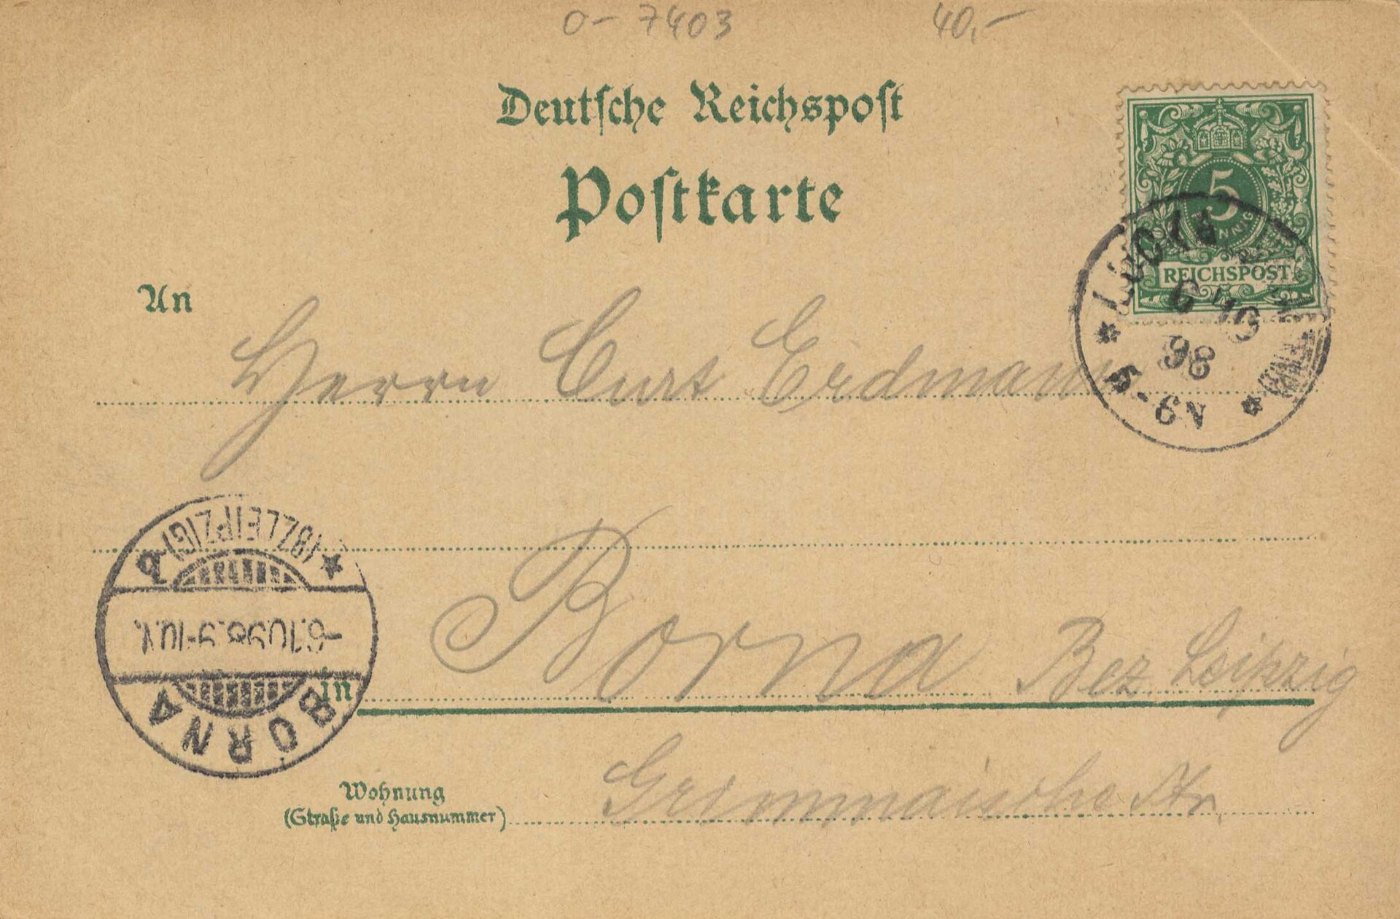 0-7403 40,-
Deutsche Reichspost
Postkarte
5
PFENNIG
REICHSPOST
LUCKA
6 10
98
5-6N
An
Herrn Curt Erdmann
(BZ.LEIPZIG) b
-6.10.98.9-10.N.
BORNA
in Borna Bez. Leipzig
Wohnung
(Straße und Hausnummer)
Grimmaische Str.